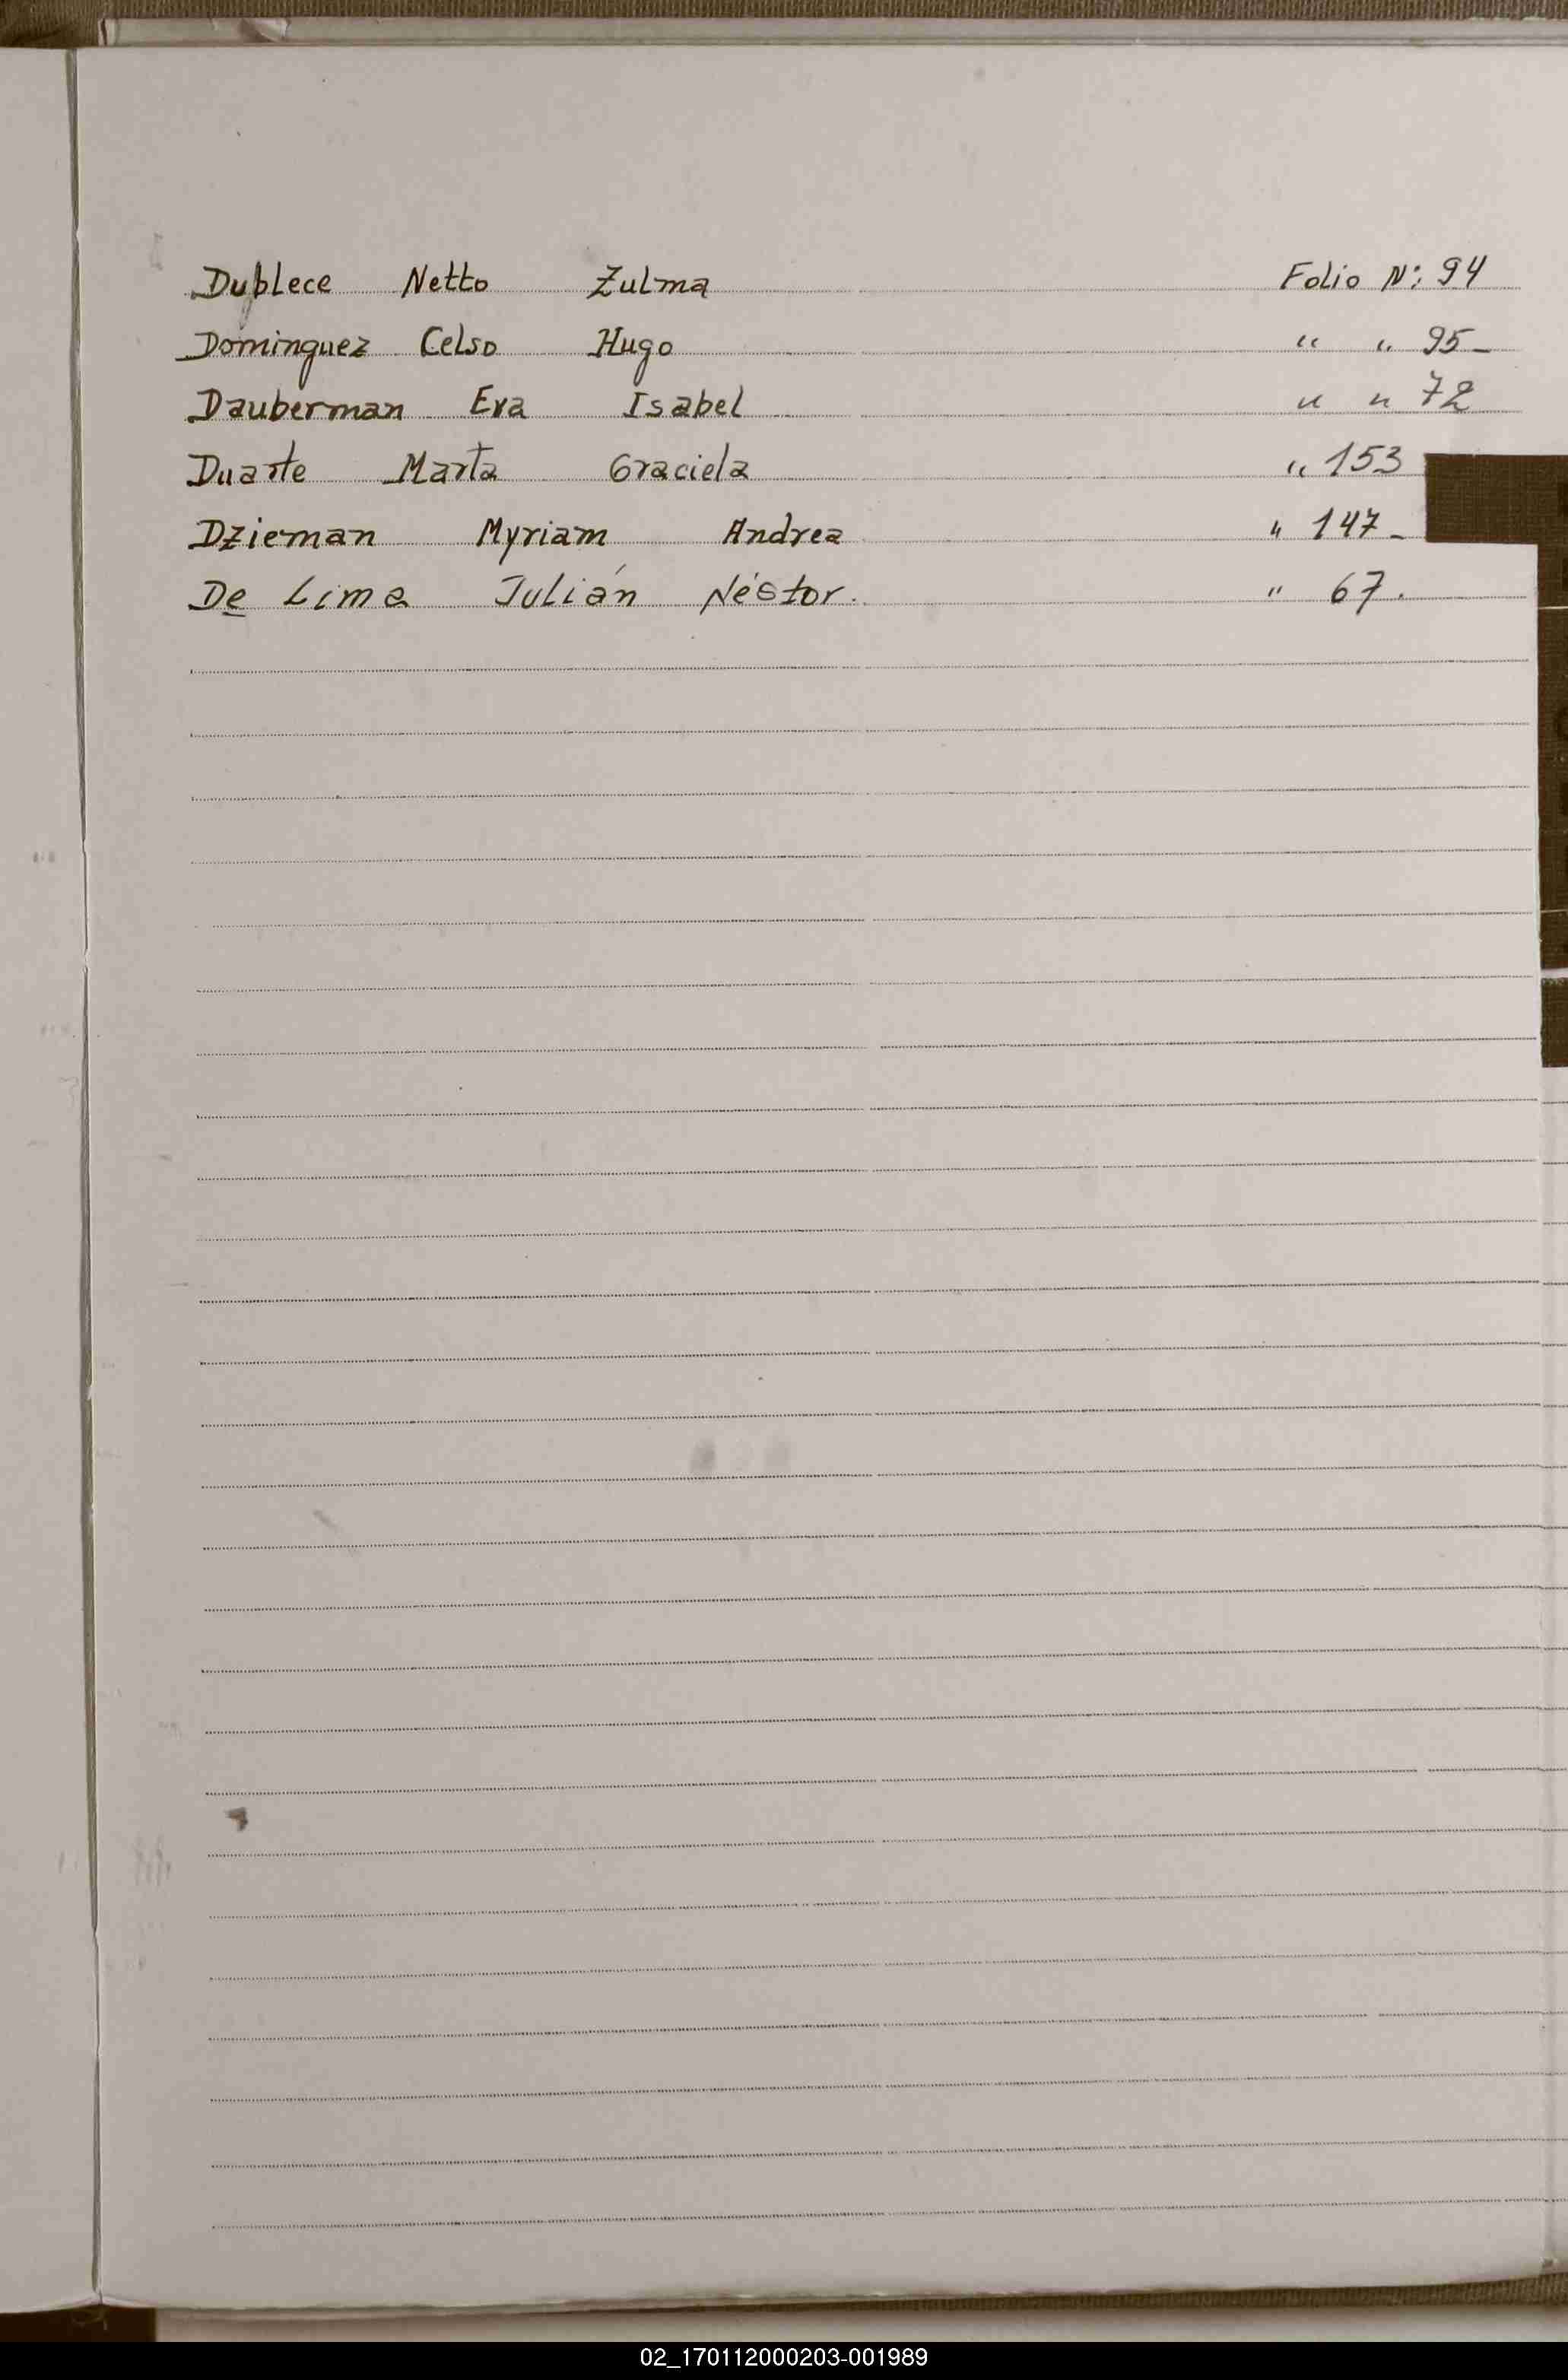 Dublece Netto Zulma Folio Nº: 94
Dominguez Celso Hugo " " 95-
Dauberman Eva Isabel " " 72
Duarte Marta Graciela " 153
Dzieman Myriam Andrea " 147-
De Lima Julián Néstor. " 67.
02_170112000203-001989